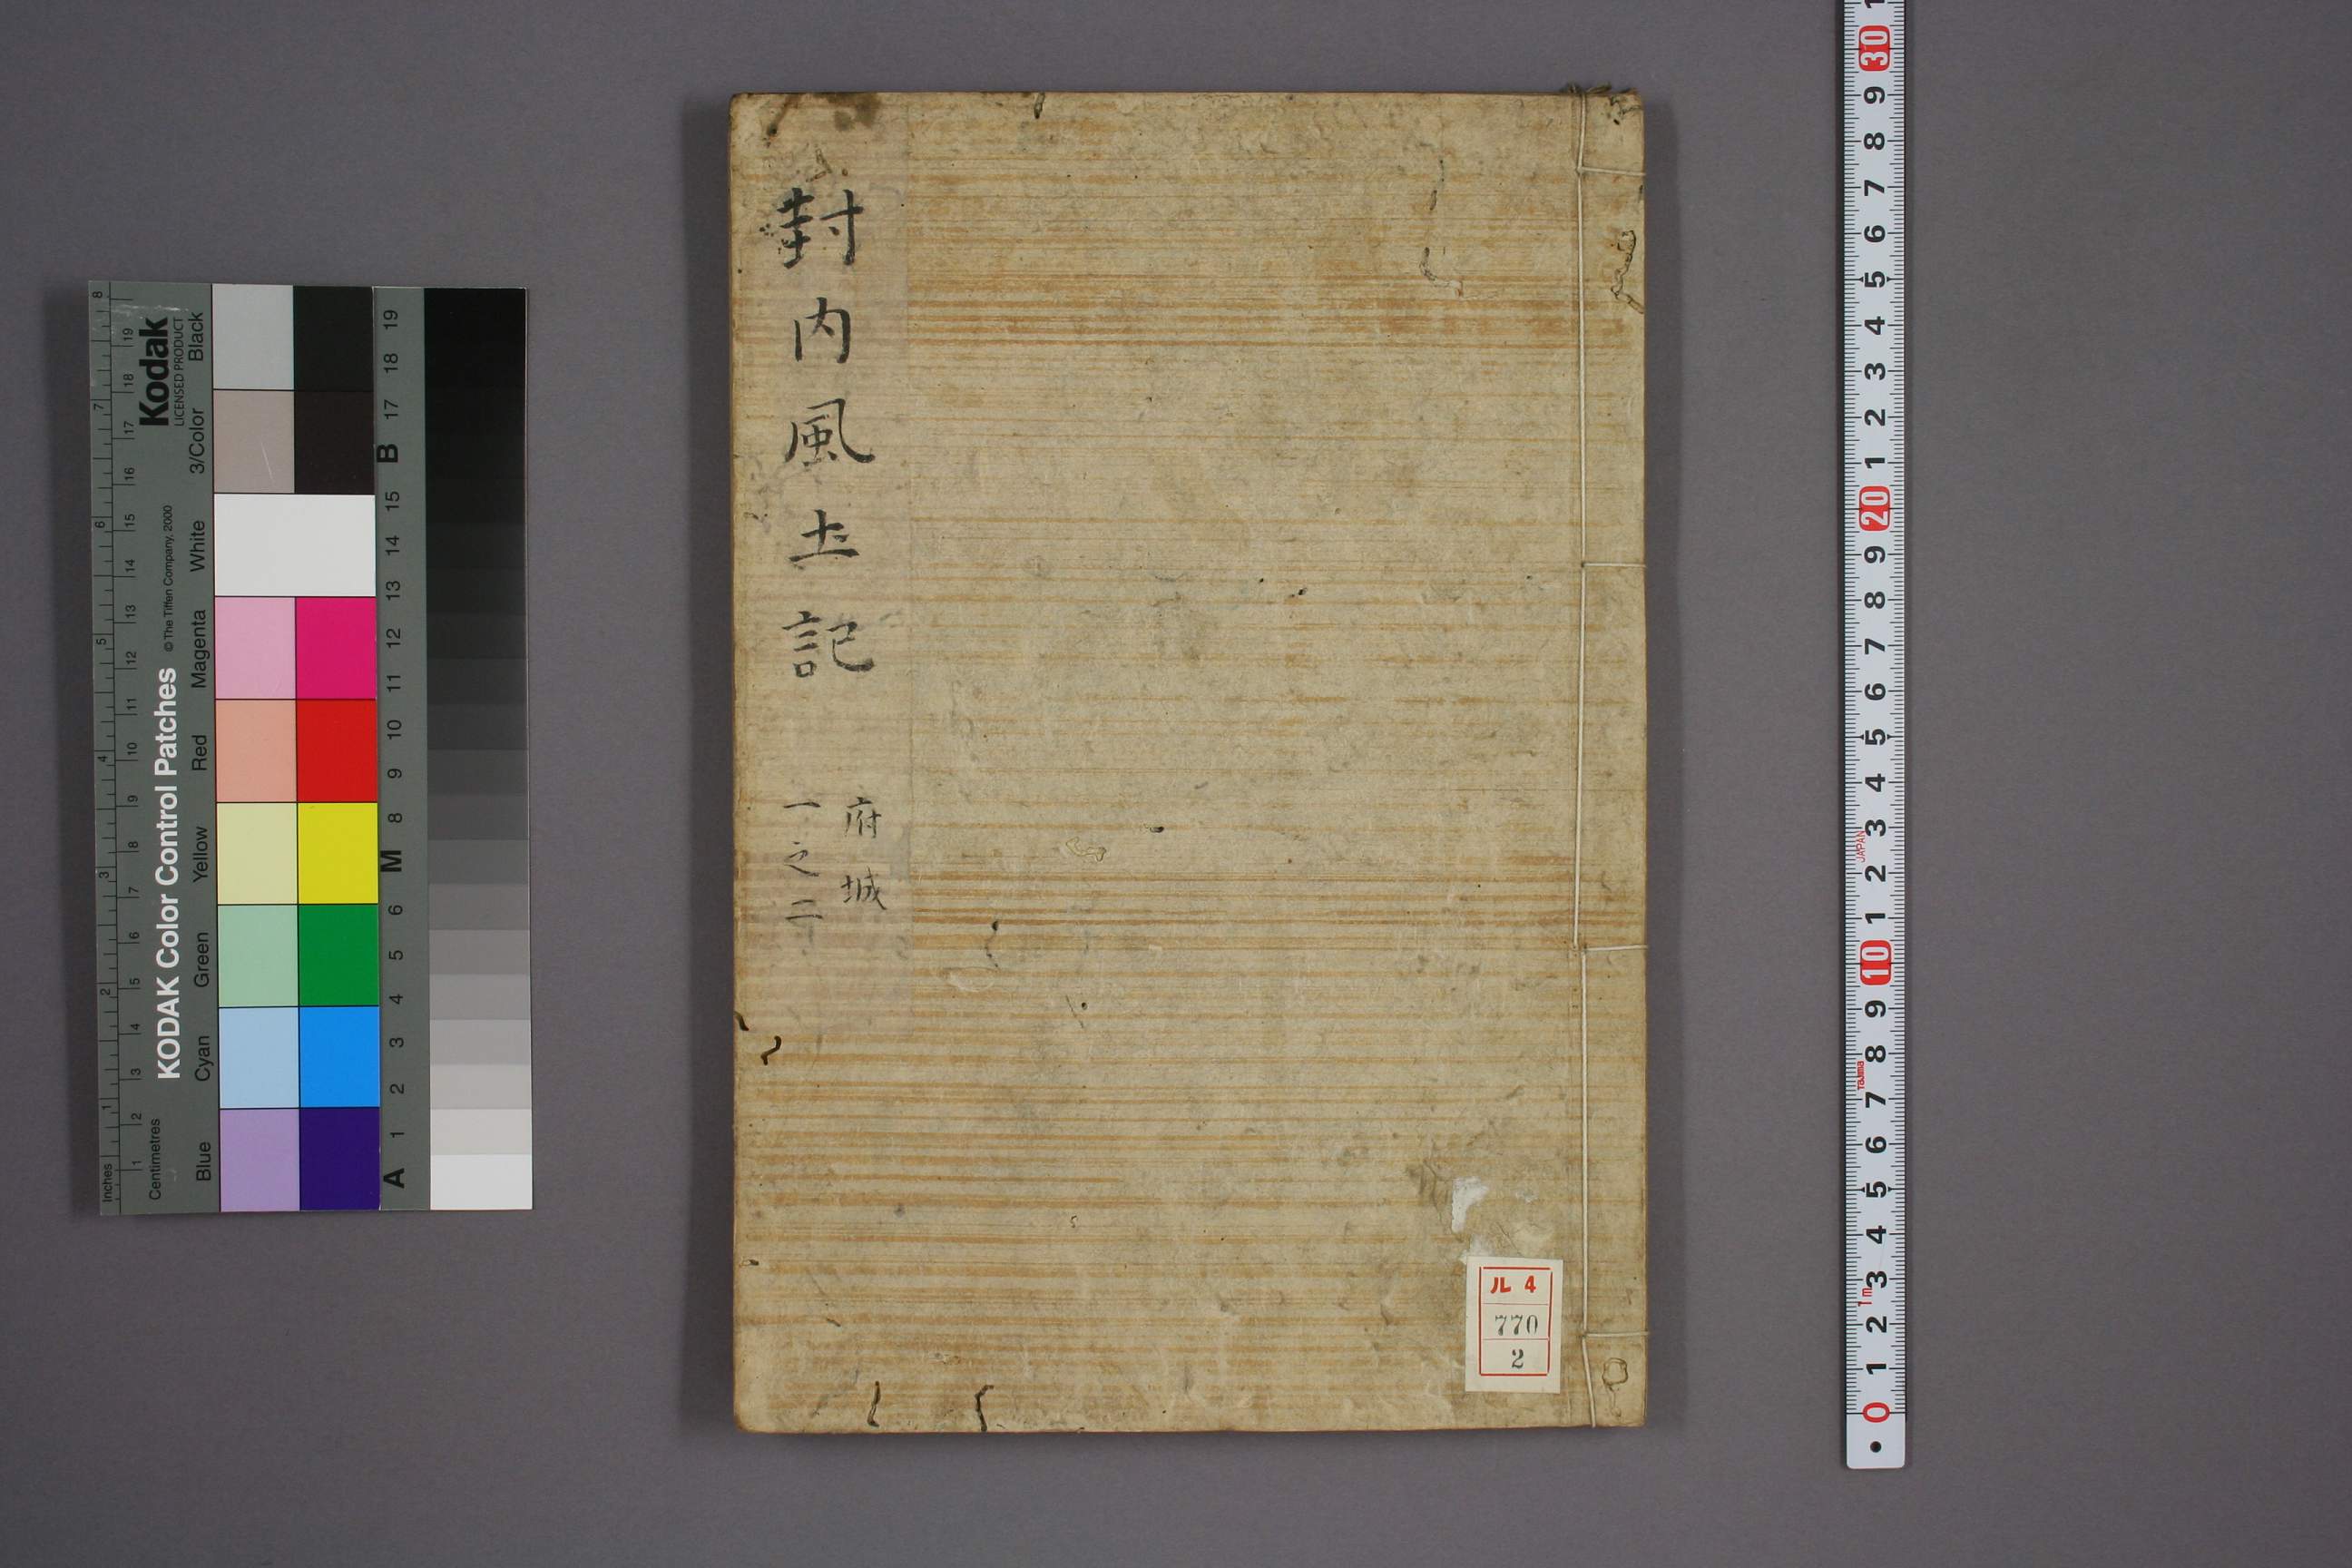 封内風土記
府城
一之二
ル 4
770
2
Kodak
LICENSED PRODUCT
KODAK Color Control Patches
© The Tiffen Company, 2000
Inches
1 2 3 4 5 6 7 8
Centimetres
1 2 3 4 5 6 7 8 9 10 11 12 13 14 15 16 17 18 19
Blue Cyan Green Yellow Red Magenta White 3/Color Black
A 1 2 3 4 5 6 M 8 9 10 11 12 13 14 15 B 17 18 19
0 1 2 3 4 5 6 7 8 9 10 1 2 3 4 5 6 7 8 9 20 1 2 3 4 5 6 7 8 9 30 1
1m
Tajima
JAPAN